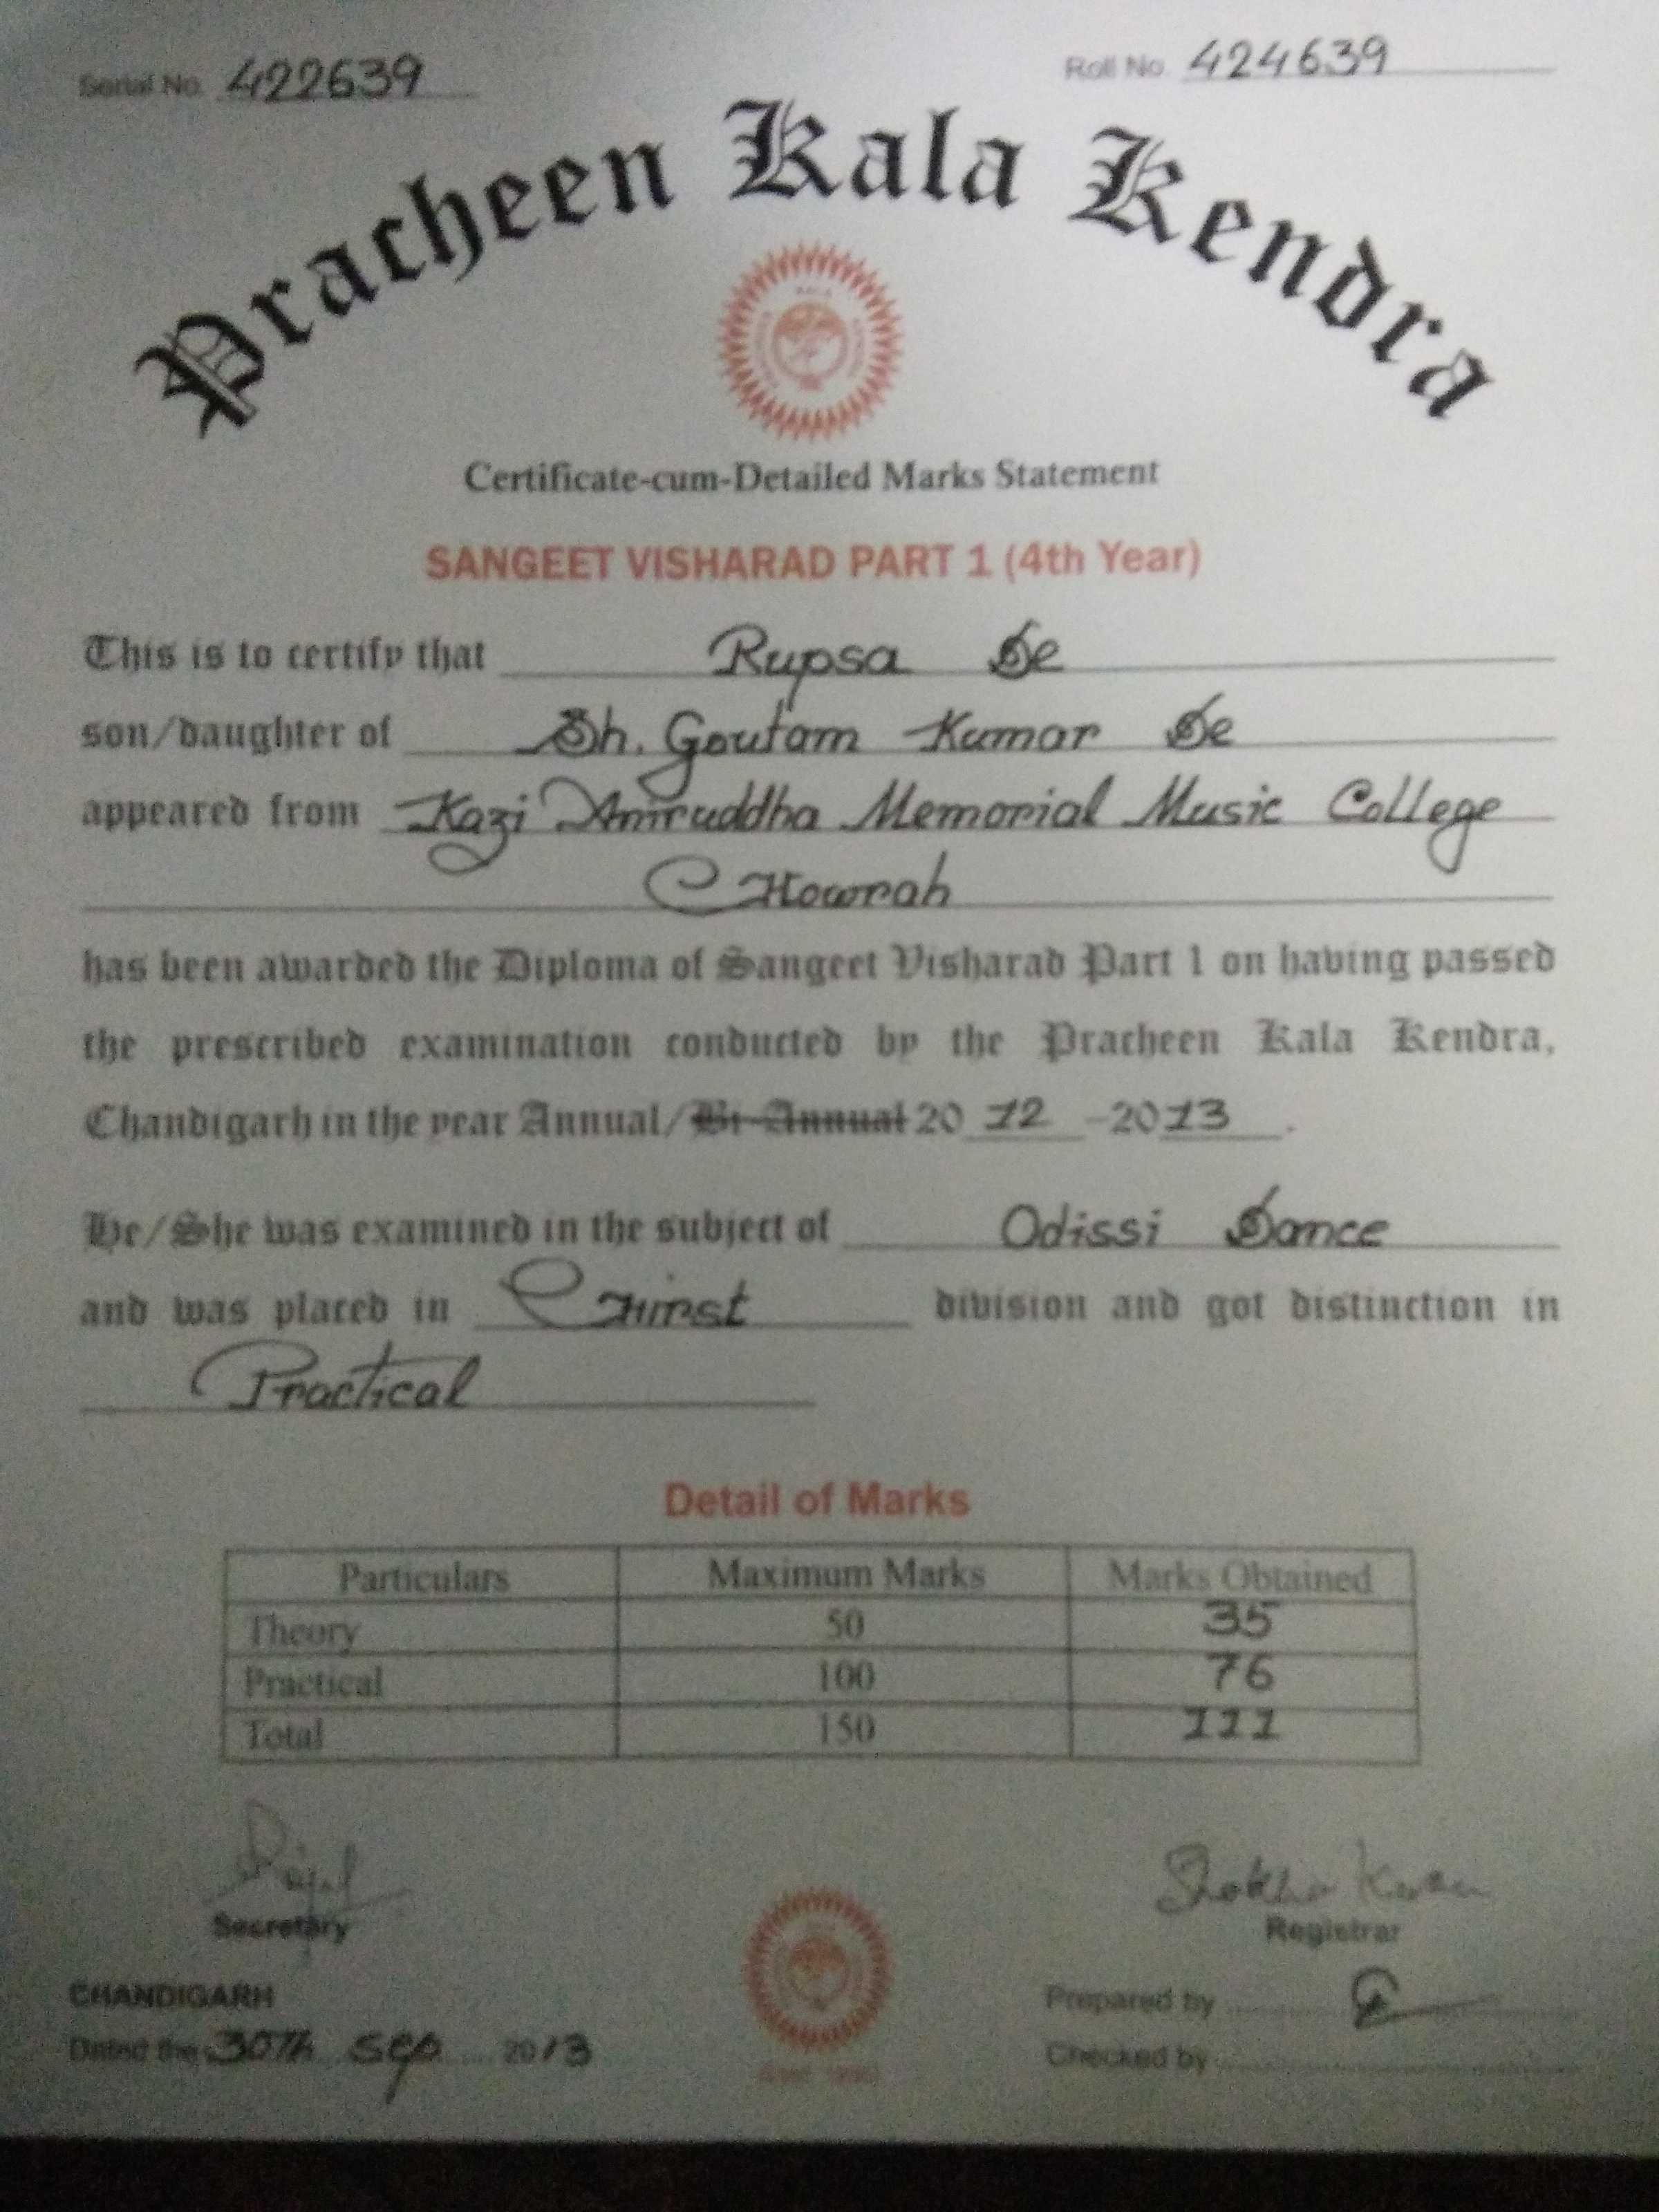 Serial No. 422639
Roll No. 424639
Pracheen Kala Kendra
Certificate-cum-Detailed Marks Statement
SANGEET VISHARAD PART 1 (4th Year)
This is to certify that Rupsa De
son/daughter of Sh. Goutam Kumar De
appeared from Kazi Aniruddha Memorial Music College
Howrah
has been awarded the Diploma of Sangeet Visharad Part 1 on having passed
the prescribed examination conducted by the Pracheen Kala Kendra,
Chandigarh in the year Annual/Bi-Annual 2012-2013.
He/She was examined in the subject of Odissi Dance
and was placed in First division and got distinction in
Practical
Detail of Marks
Particulars Maximum Marks Marks Obtained
Theory 50 35
Practical 100 76
Total 150 111
Secretary
Registrar
CHANDIGARH
Prepared by
Dated the 30th Sep 2013
Checked by